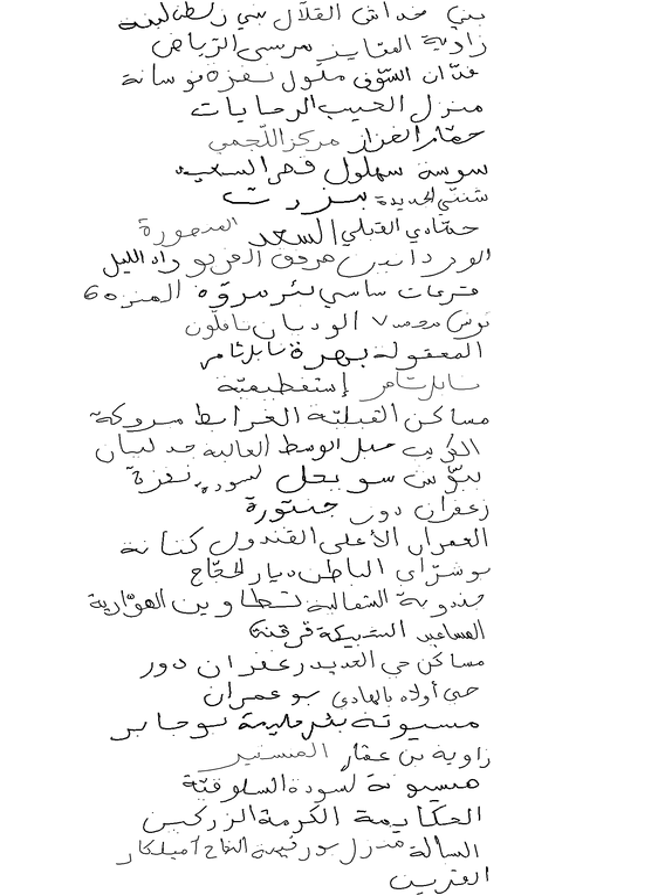 بني خداش القلال بني زلطن لبنة
زاوية الفتايز مرسى الرياض
فدّان السّوق ملّول نفزة فوسانة
منزل الحبيب الرضايات
حمّام الغزاز مركز اللّجمي
سوسة سهلول قصر السعيد
شنني الجديدة بنزرت
حمّادي القبلي السعد المنصورة
الوردانين مرناق الفريو واد الليل
قريمات ساسي بئر مروّة المنزه 6
تونس الوديان نافلون
المعقولة بهرة نابل ثامر
نابل ثامر إستفطيميّة
مساكن القبليّة الخرايط مبروكة
الكريب الوسط العالية جدليان
ببّوش سويحل لسودة نفزة
زعفران دوز جنتورة
العمران الأعلى القندول كتانة
بوشرّاي الباطن ديار الحجّاج
جندوبة الشمالية تطاوين الهوّارية
المساعيد الشبيكة قرقنة
مساكن حي الحديد زعفران دوز
حي أولاد بالهادي بوعمران
مسيوتة بئر مليمة بوجابر
زاوية بن عمّار المنستير
هيسونة لسودة السلوقيّة
الحكايمة الكرمة الزركين
السالة منزل بورقيبة النفاح أميلكار
القرين